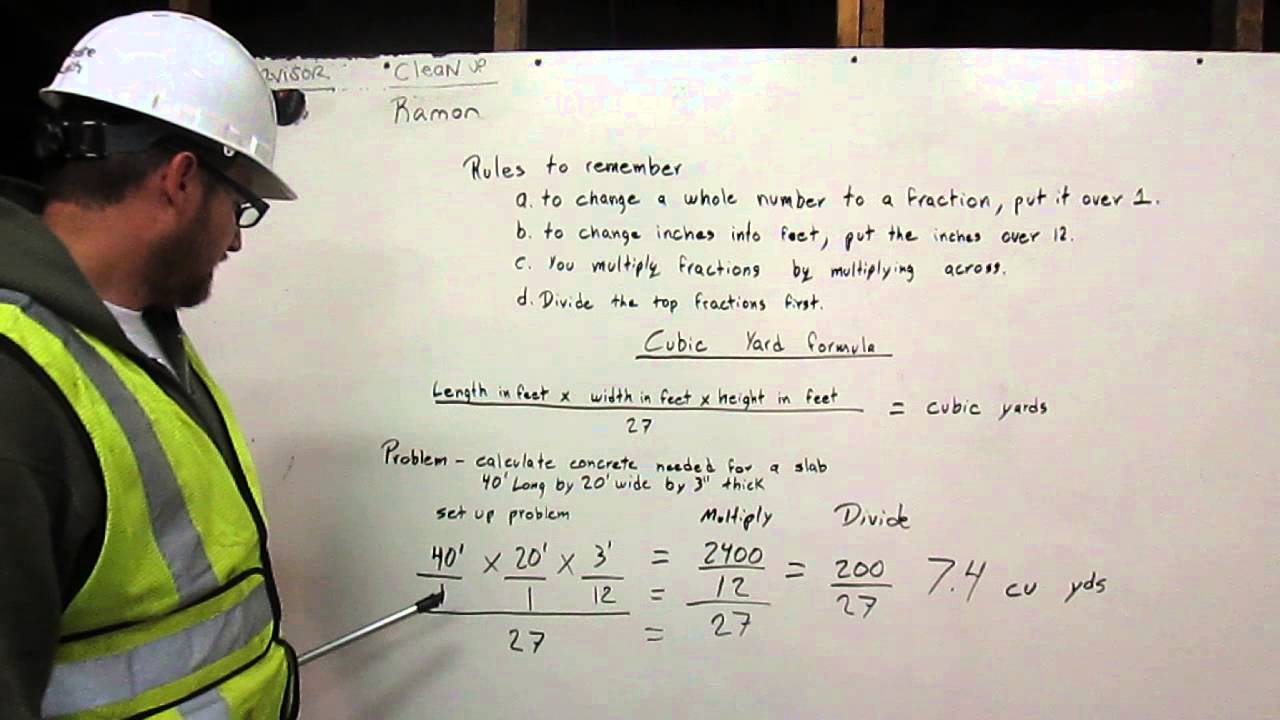 CleanUp
Ramon
Rules to remember
a. to change a whole number to a fraction, put it over 1.
b. to change inches into feet, put the inches over 12.
c. You multiply fractions by multiplying across.
d. Divide the top fractions first.
Cubic Yard formula
Length in feet x width in feet x height in feet
27
= cubic yards
Problem - calculate concrete needed for a slab
40' Long by 20' wide by 3" thick
set up problem Multiply Divide
40' x 20' x 3' = 2400 = 200 7.4 cu yds
1 1 12 = 12 27
27 = 27